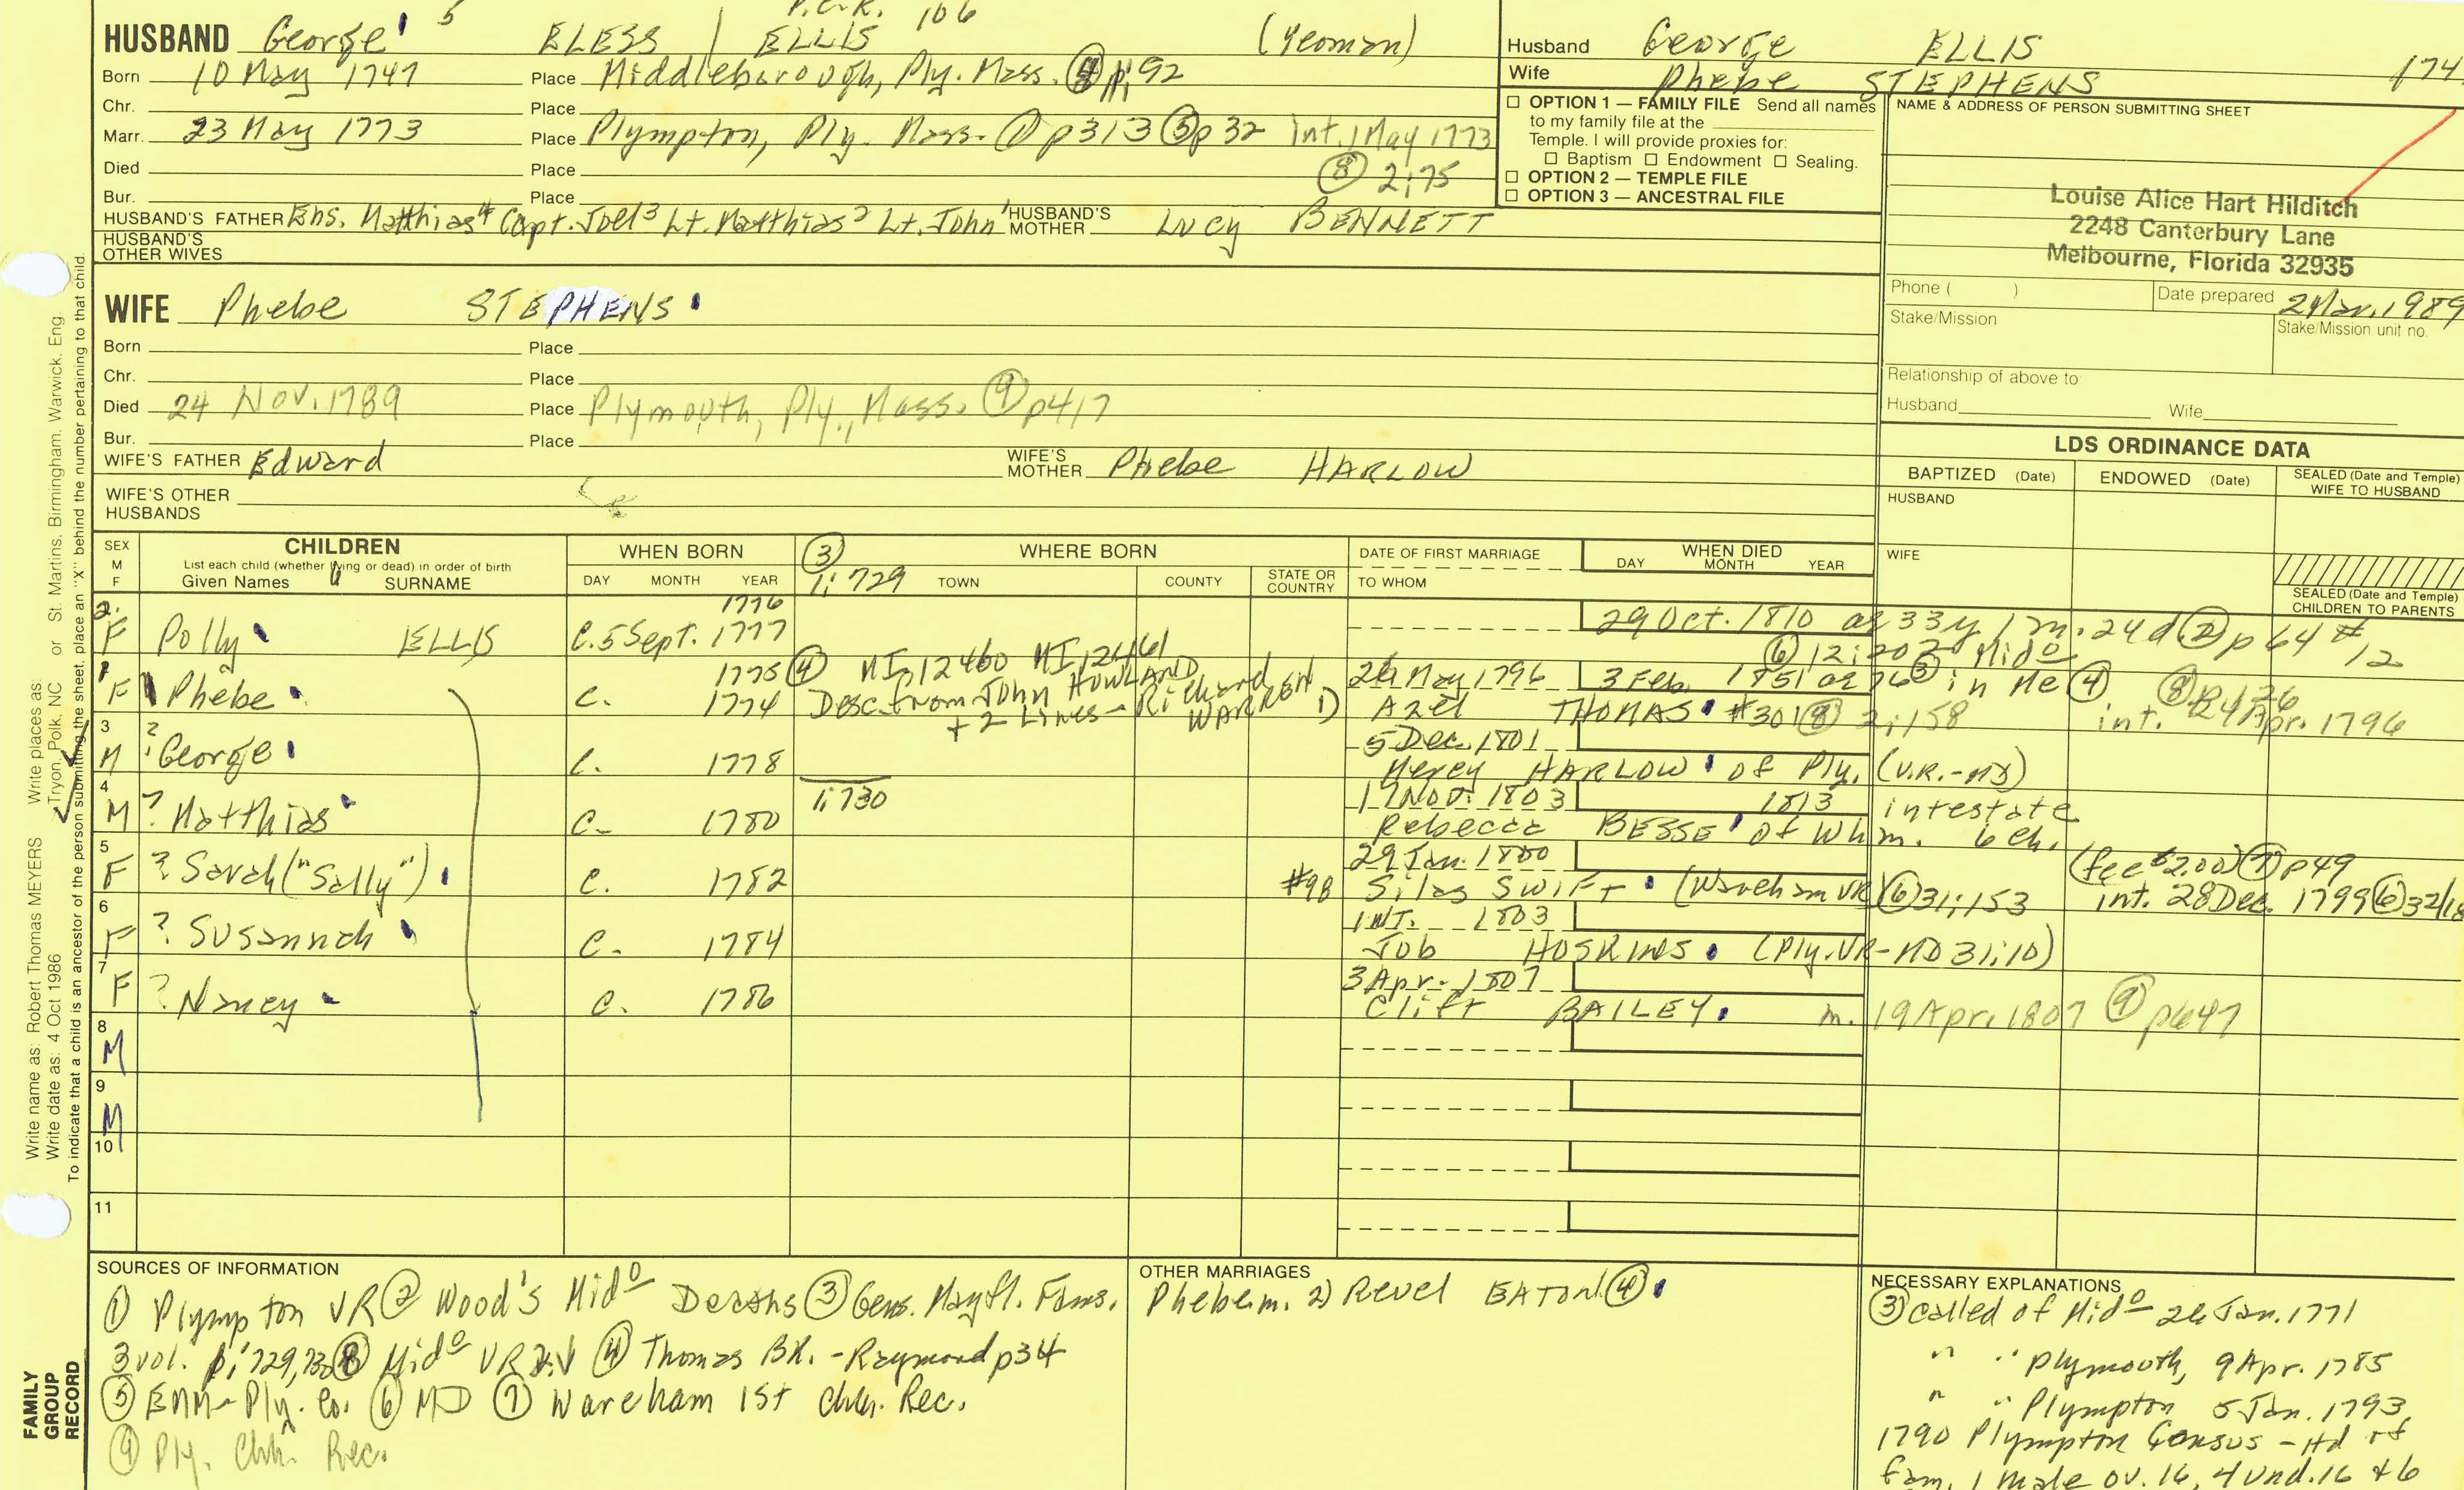 P.C.R. 106
HUSBAND George 5 ELESS / ELLIS (Yeoman)
Born 10 May 1747 Place Middleborough, Ply. Mass. p. 92
Chr. Place
Marr. 23 May 1773 Place Plympton, Ply. Mass. ① p313 ⑤ p32 Int. 1 May 1773
Died Place ⑧ 2:75
Bur. Place
HUSBAND'S FATHER Ens. Matthias⁴ Capt. Joel³ Lt. Matthias² Lt. John¹ HUSBAND'S MOTHER Lucy BENNETT
HUSBAND'S OTHER WIVES
Husband George ELLIS
Wife Phebe STEPHENS 174
☐ OPTION 1 — FAMILY FILE Send all names
to my family file at the
Temple. I will provide proxies for:
☐ Baptism ☐ Endowment ☐ Sealing.
☐ OPTION 2 — TEMPLE FILE
☐ OPTION 3 — ANCESTRAL FILE
NAME & ADDRESS OF PERSON SUBMITTING SHEET
Louise Alice Hart Hilditch
2248 Canterbury Lane
Melbourne, Florida 32935
Phone ( ) Date prepared 1989
Stake/Mission Stake/Mission unit no.
Relationship of above to
Husband Wife
WIFE Phebe STEPHENS
Born Place
Chr. Place
Died 24 Nov. 1789 Place Plymouth, Ply., Mass. ⑨ p417
Bur. Place
WIFE'S FATHER Edward WIFE'S MOTHER Phebe HARLOW
WIFE'S OTHER HUSBANDS
LDS ORDINANCE DATA
BAPTIZED (Date) ENDOWED (Date) SEALED (Date and Temple) WIFE TO HUSBAND
HUSBAND
WIFE
SEALED (Date and Temple) CHILDREN TO PARENTS
SEX M F
CHILDREN
List each child (whether living or dead) in order of birth
Given Names SURNAME
WHEN BORN
DAY MONTH YEAR
③ WHERE BORN
1:729 TOWN COUNTY STATE OR COUNTRY
DATE OF FIRST MARRIAGE
TO WHOM
WHEN DIED
DAY MONTH YEAR
1776
2. F Polly ELLIS C. 5 Sept. 1777 29 Oct. 1810 ae 33y 1 m. 24d ② p 64 #12
⑥ 12:202 Mido
1775 ④ MI12460 MI12461
1 F Phebe C. 1774 Desc. from John HOWLAND + 2 Lines - Richard WARREN 1) 26 May 1796 3 Feb. 1851 ae 76 ③ in Me ④
Azel THOMAS #301 ⑧ 2:158 int. 24 Apr. 1796
3 M ? George C. 1778 5 Dec. 1801
Mercy HARLOW of Ply. (V.R.-MD)
4 M ? Matthias C. 1780 1:730 17 Nov. 1803 1813 intestate
Rebecca BESSE of Whm. 6 ch.
5 F ? Sarah ("Sally") C. 1782 #98 29 Jan. 1800 (fee $2.00) ⑦ p49
Silas SWIFT (Wareham VR) ⑥ 31:153 int. 28 Dec. 1799 ⑥
6 F ? Susannah C. 1784 INT. 1803
Job HOSKINS (Ply. VR-MD 31:10)
7 F ? Nancy C. 1786 3 Apr. 1807
Clift BAILEY. m. 19 Apr. 1807 ⑨ p647
8 M
9 M
10
11
SOURCES OF INFORMATION
① Plympton VR ② Wood's Mido Deaths ③ Gens. Mayfl. Fams.
3 vol. 1:729,730 ⑧ Mido VR ④ Thomas BK. - Raymond p34
⑤ EMM - Ply. Co. ⑥ MD ⑦ Wareham 1st Chh. Rec.
⑨ Ply. Chh. Rec.
OTHER MARRIAGES
Phebe m. 2) Revel EATON ④
NECESSARY EXPLANATIONS
③ called of Mido 26 Jan. 1771
" " Plymouth, 9 Apr. 1785
" " Plympton 5 Jan. 1793
1790 Plympton Census - Hd of
fam. 1 male ov. 16, 4 und. 16 & 6
Write name as: Robert Thomas MEYERS Write places as:
Write date as: 4 Oct 1986 Tryon, Polk, NC or St. Martins, Birmingham, Warwick, Eng.
To indicate that a child is an ancestor of the person submitting the sheet, place an "X" behind the number pertaining to that child.
FAMILY GROUP RECORD